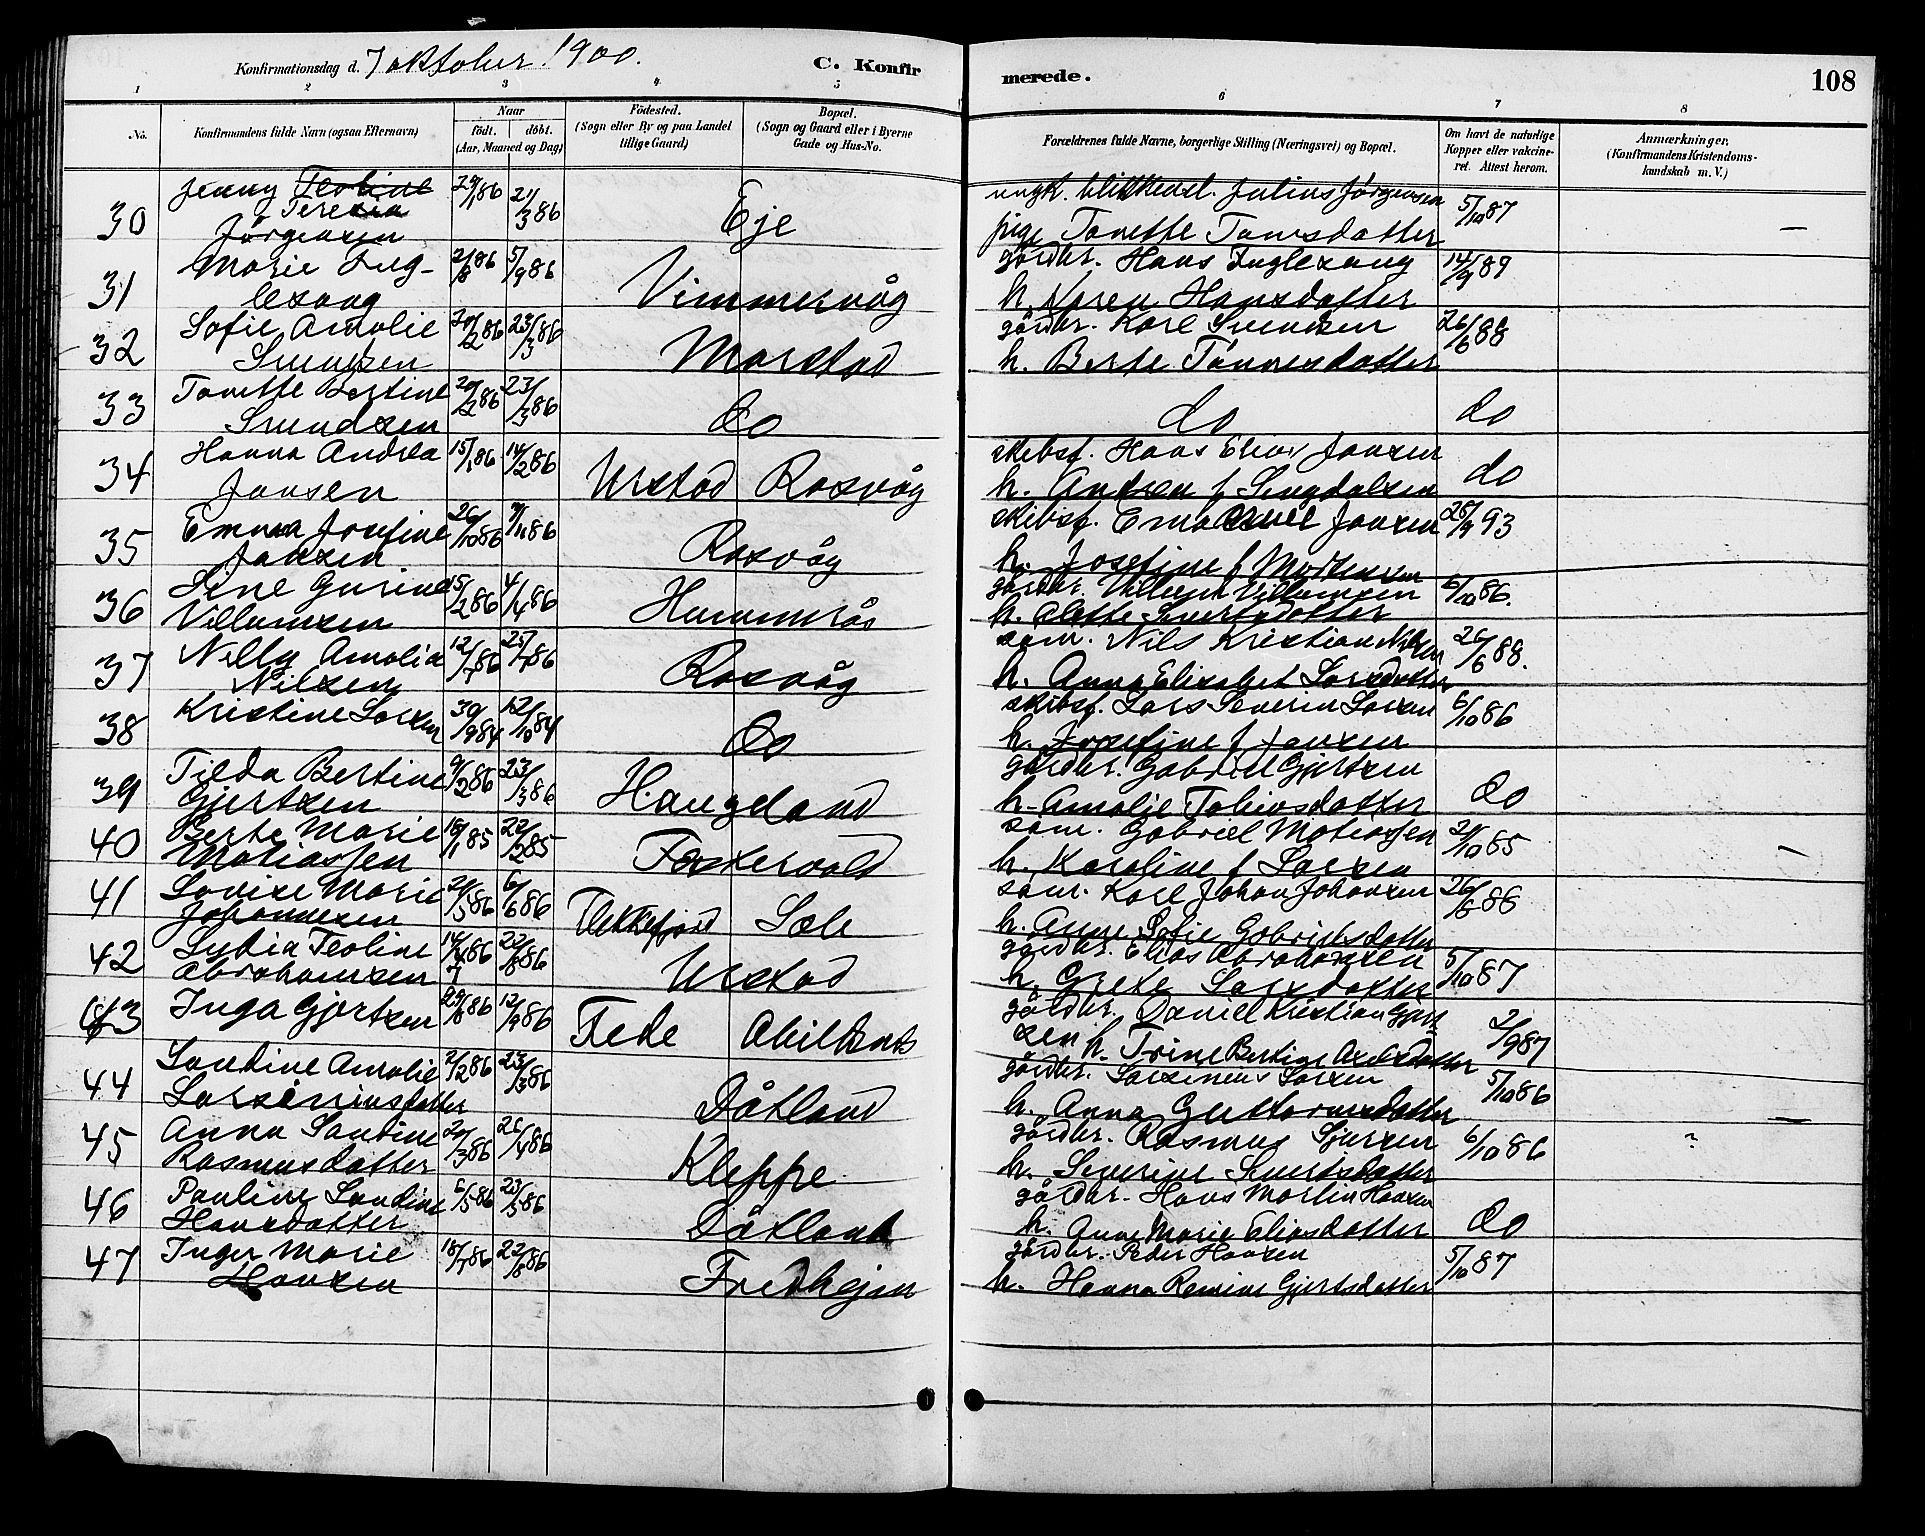 Konfirmationsdag d. 7 oktober 1900.
C. Konfir
merede.
108
1 2 3 4 5 6 7 8
No.
Konfirmandens fulde Navn (ogsaa Efternavn)
Naar
født. døbt.
(Aar, Maaned og Dag)
Fødested.
(Sogn eller By og paa Landet
tillige Gaard)
Bopæl.
(Sogn og Gaard eller i Byerne
Gade og Hus-No.
Forældrenes fulde Navne, borgerlige Stilling (Næringsvei) og Bopæl.
Om havt de naturlige
Kopper eller vakcine-
ret. Attest herom.
Anmærkninger.
(Konfirmandens Kristendoms-
kundskab m. V.)
30 Jenny Teoline 21/3 86 Eje ungk. Julius Jørgensen 5/10 87
Teresia
Jørgensen pige Tonette Tomsdatter —
31 Marie Fug- 2/8 86 5/9 86 Vimmersvåg gårdbr. Hans Fuglesang 14/9 89
lesang h. Hansdatter
32 Sofie Amalie 20/2 86 23/3 86 Morstad gårdbr. Karl Svendsen 26/6 88
Svendsen h. Berte Tønnesdatter
33 Tonette Bertine 20/2 86 23/3 86 do do do
Svendsen
34 Hanna Andrea 15/1 86 14/2 86 Urstad Rasvåg skibsf. Hans Jansen do
Jansen h. Andrea f Sengdalsen
35 Emma Josefine 26/10 86 7/11 86 Rasvåg skibsf. Emanuel Jansen 25/9 93
Jansen h. Josefine f Mortensen
36 Sine Gurine 15/2 86 4/4 86 Hummerås gårdbr. Villum Villumsen 6/10 86.
Villumsen h. Alette Sivertsdatter
37 Nelly Amalia 12/7 86 25/7 86 Rasvåg søm. Nils Kristian Nilsen 26/6 88.
Nilsen h. Anna Elisabet Larsdatter
38 Kristine Larsen 30/9 84 12/10 84 do skibsf. Lars Severin Larsen 6/10 86
h. Josefine f Jansen
39 Tilda Bertine 9/2 86 23/3 86 Haugeland gårdbr. Gabriel Gjertsen do
Gjertsen h. Amalie Tobiasdatter
40 Berte Marie 18/1 85 22/2 85 Faskevold søm. Gabriel Matiassen 21/10 85 —
Matiassen h. Karoline f Larsen
41 Lovise Marie 24/5 86 6/6 86 Flekkefjord Sæle søm. Karl Johan Johansen 26/6 88
Johannesen h. Anne Sofie Gabrielsdatter
42 Lydia Teoline 14/7 86 22/8 86 Urstad gårdbr. Elias Abrahamsen 5/10 87
Abrahamsen h. Grete Larsdatter
43 Inga Gjertsen 29/8 86 12/9 86 Fede Abelsnes gårdbr. Daniel Kristian Gjert 2/9 87
sen h. Trine Bertine Axelsdatter
44 Landine Amalie 2/2 86 23/3 86 Dåtland gårdbr. Larsinius Larsen 5/10 86
Larsiniusdatter h. Anna Guttormsdatter —
45 Anna Landine 20/3 86 26/4 86 Kleppe gårdbr. Rasmus Sjursen 6/10 86
Rasmusdatter h. Severine Sivertsdatter
46 Pauline Landine 6/5 86 23/5 86 Dåtland gårdbr. Hans Martin Hansen do
Hansdatter h. Anne Marie Eliasdatter
47 Inger Marie 18/7 86 22/8 86 Fredhejm gårdbr. Peder Hansen 5/10 87
Hansen h. Hanna Remine Gjertsdatter